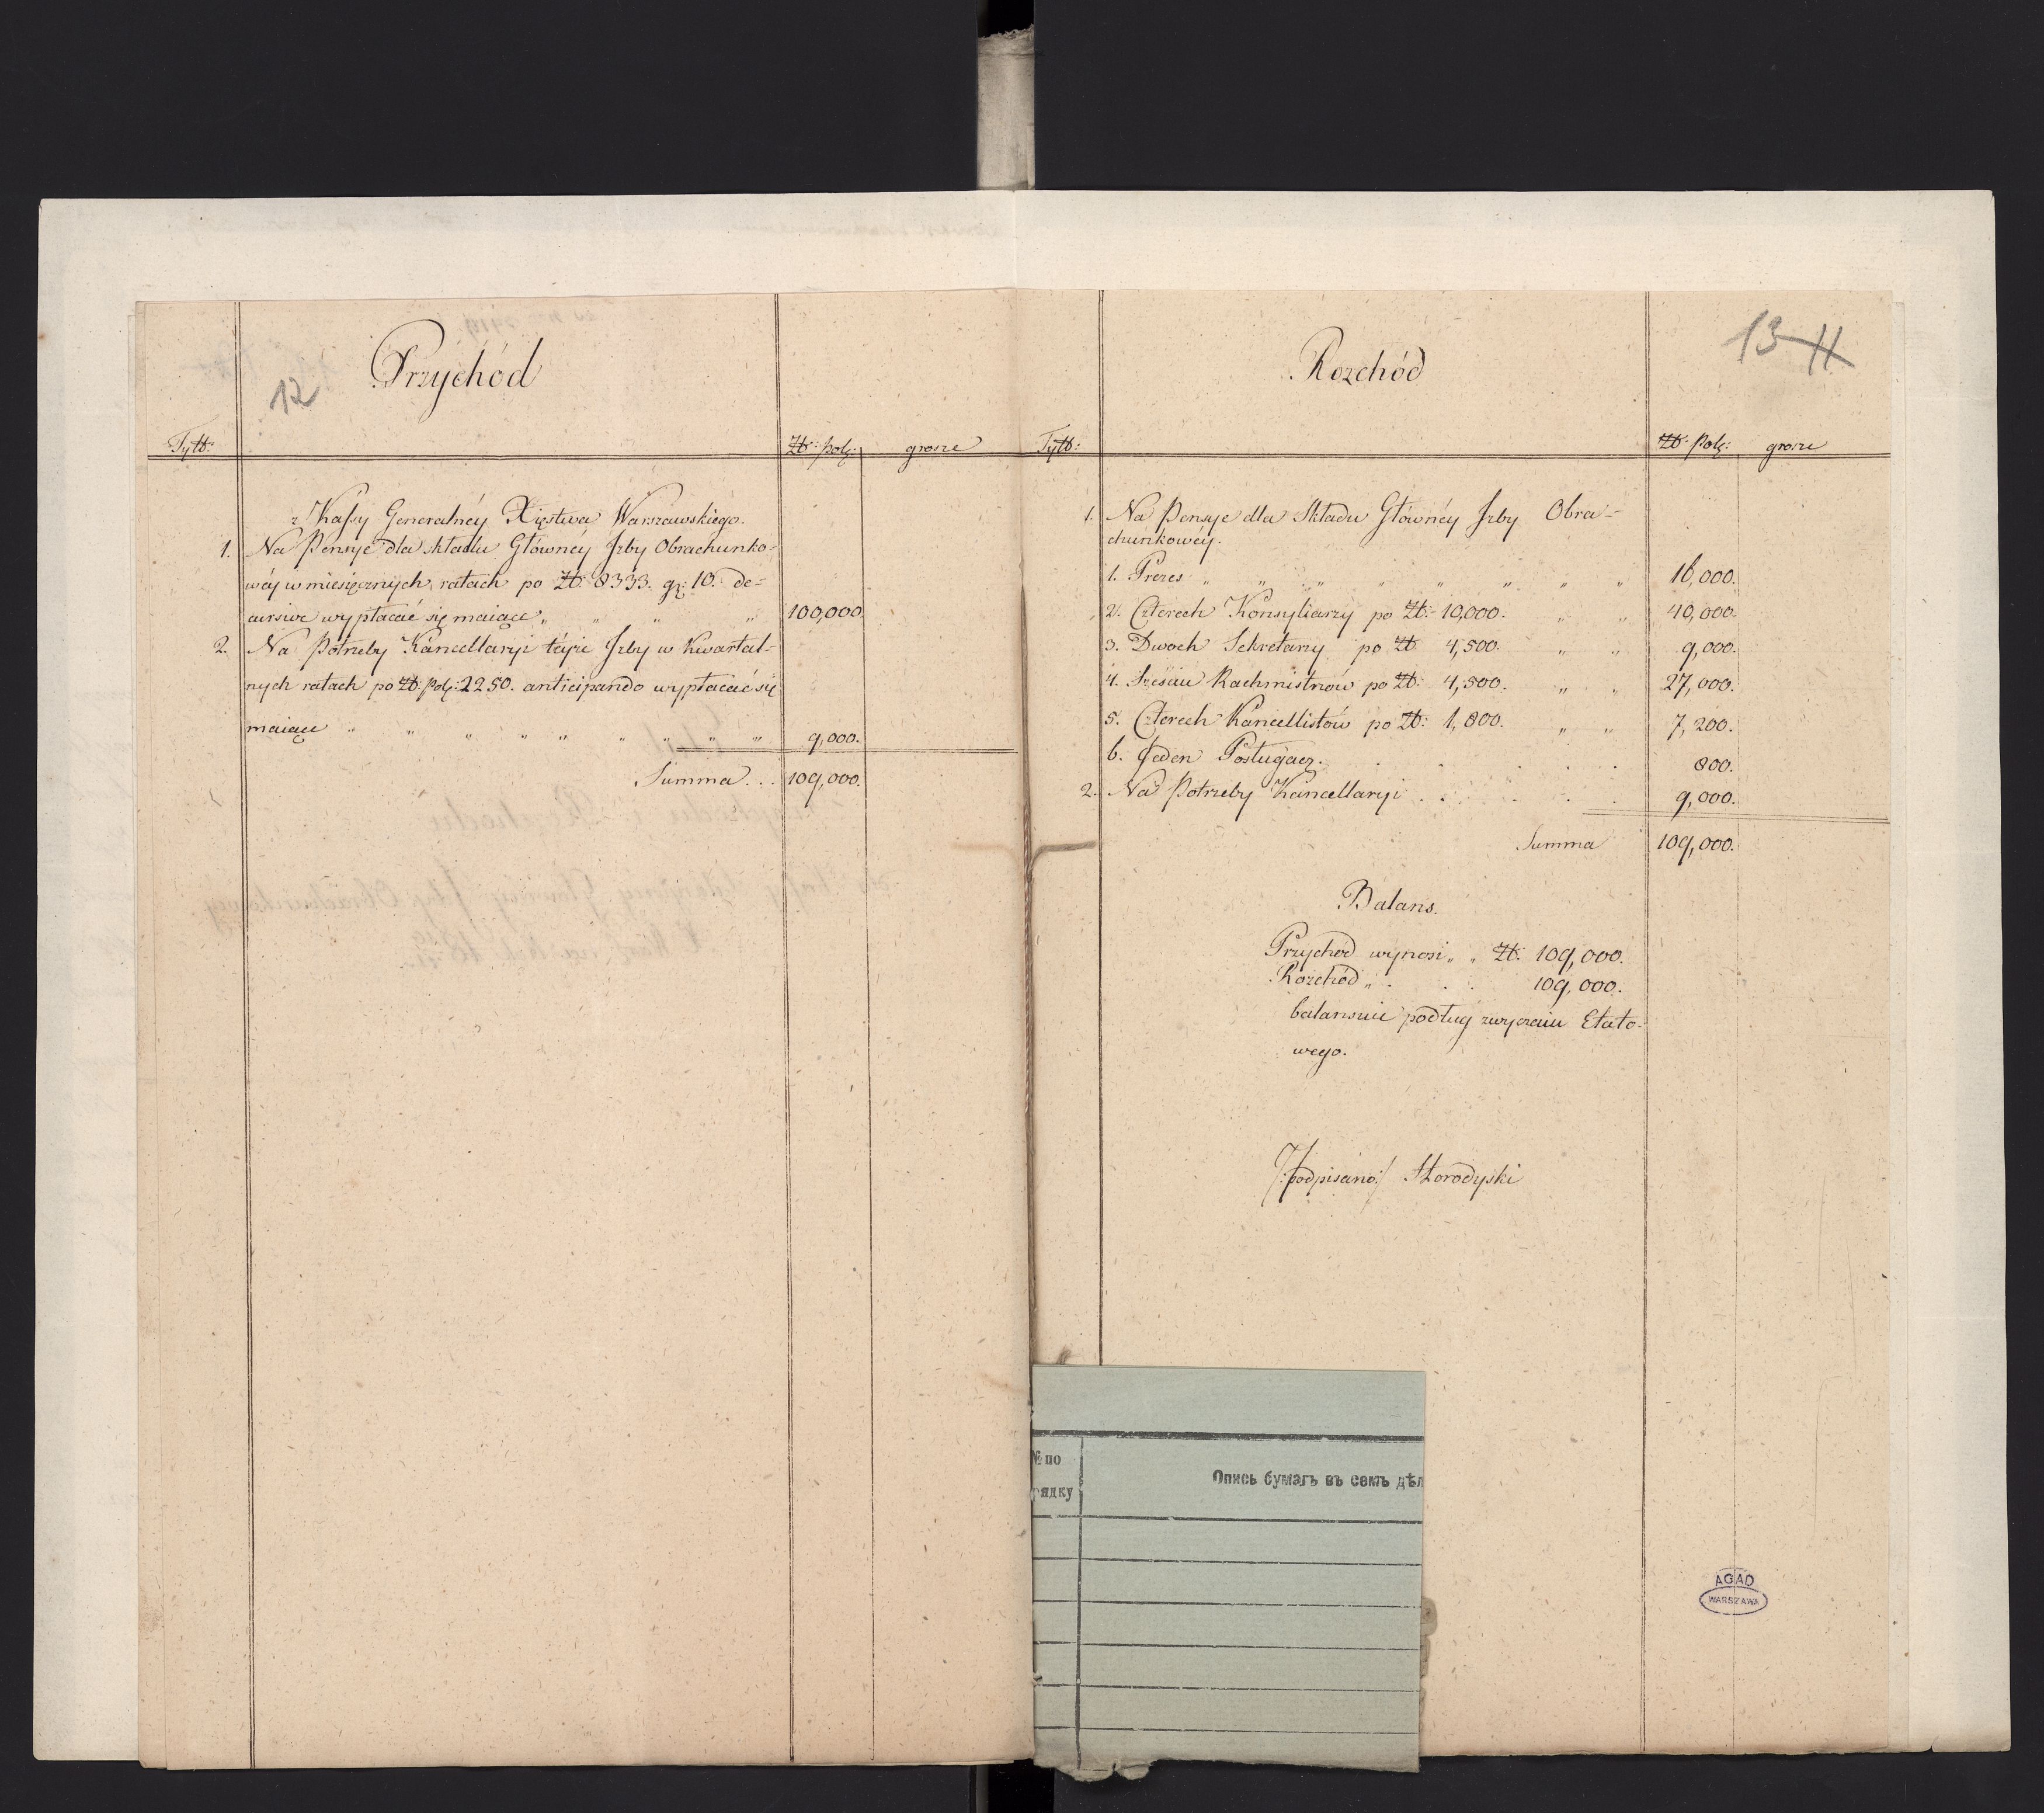 12
Przychód
Tytł:
Zł: Pol:
grosze
z Kassy Generalnéy Xięstwa Warszawskiego.
1. Na Pensye dla składu Głównéy Izby Obrachunko-
wéy w miesięcznych ratach po Zł: 8333. gr: 10. de-
cursive wypłacać się maiące „ „ „ „ 100,000.
2. Na Potrzeby Kancellaryi téyże Izby w Kwartal-
nych ratach po Zł: Pol: 2250. anticipando wypłacać się
maiące „ „ „ „ „ „ „ „ „ 9,000.
Summa . . . 109,000.
13 11
Rozchód
Tytł:
Zł: Pol:
grosze
1. Na Pensye dla Składu Głównéy Izby Obra-
chunkowéy.
1. Prezes „ „ „ „ „ „ „ „ 16,000.
2. Czterech Konsyliarzy po Zł: 10,000. „ „ 40,000.
3. Dwoch Sekretarzy po Zł 4,500. „ „ 9,000.
4. Sześciu Rachmistrzów po Zł: 4,500. „ „ 27,000.
5. Czterech Kancellistów po Zł: 1,800. „ „ 7,200.
6. Jeden Posługacz. . . . . . 800.
2. Na Potrzeby Kancellaryi . . . . . 9,000.
Summa 109,000.
Balans.
Przychód wynosi „ „ Zł. 109,000.
Rozchód „ . . . 109,000.
balansuie podług zwyczaiu Etato-
wego.
/:podpisano:/ Horodyski
№ по
рядку
Опись бумагъ въ семъ дѣл
AGAD
WARSZAWA